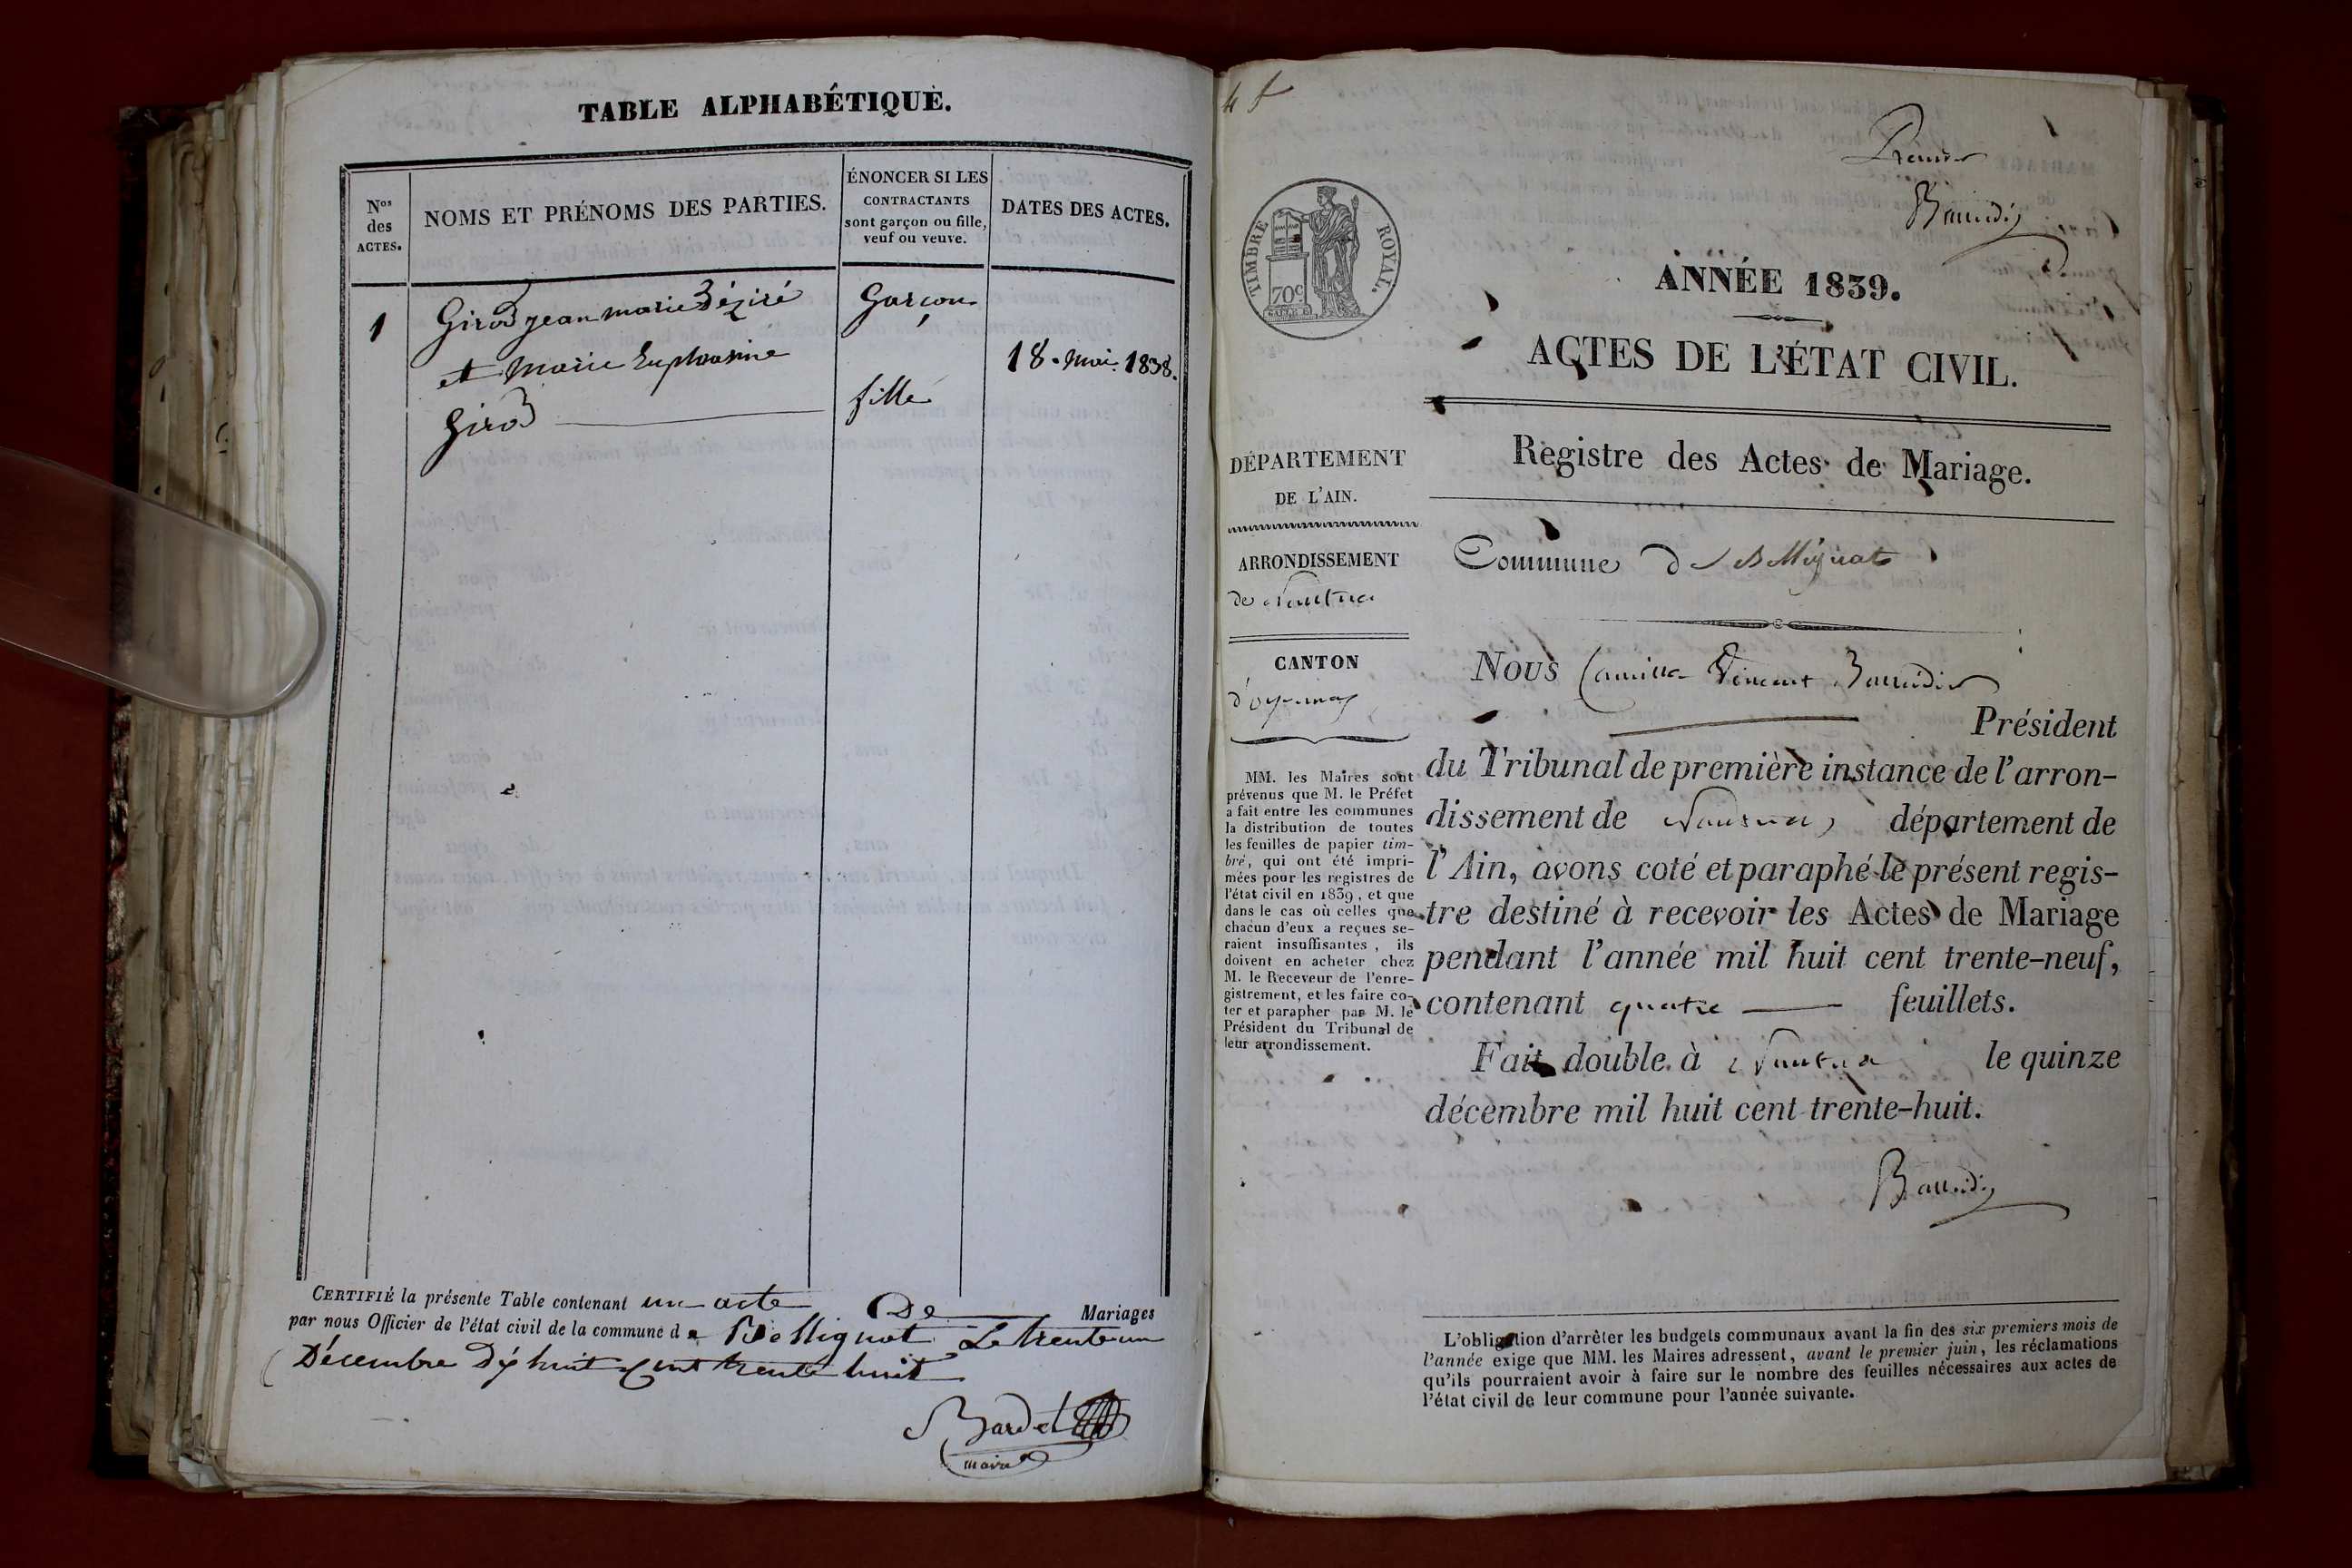 TABLE ALPHABÉTIQUE.
Nos
des
ACTES.
NOMS ET PRÉNOMS DES PARTIES.
ÉNONCER SI LES
CONTRACTANTS
sont garçon ou fille,
veuf ou veuve.
DATES DES ACTES.
1
Girod jean marie Déziré
Garçon
et Marie Euphrasine
18. Mai. 1838.
Girod
fille
CERTIFIÉ la présente Table contenant un acte De Mariages
par nous Officier de l'état civil de la commune de Bellignat Le trente un
Décembre Dix huit Cent trente huit
Bardet
maire
Premier
Baudin
TIMBRE ROYAL.
70c
ANNÉE 1839.
ACTES DE L'ÉTAT CIVIL.
Registre des Actes de Mariage.
DÉPARTEMENT
DE L'AIN.
ARRONDISSEMENT
de Nantua
CANTON
d'oyonnax
MM. les Maires sont
prévenus que M. le Préfet
a fait entre les communes
la distribution de toutes
les feuilles de papier tim-
bré, qui ont été impri-
mées pour les registres de
l'état civil en 1839, et que
dans le cas où celles que
chacun d'eux a reçues se-
raient insuffisantes, ils
doivent en acheter chez
M. le Receveur de l'enre-
gistrement, et les faire co-
ter et parapher par M. le
Président du Tribunal de
leur arrondissement.
Commune de Bellignat
Nous Camille Vincent
Président
du Tribunal de première instance de l'arron-
dissement de Nantua, département de
l'Ain, avons coté et paraphé le présent regis-
tre destiné à recevoir les Actes de Mariage
pendant l'année mil huit cent trente-neuf,
contenant quatre feuillets.
Fait double à Nantua le quinze
décembre mil huit cent trente-huit.
L'obligation d'arrêter les budgets communaux avant la fin des six premiers mois de
l'année exige que MM. les Maires adressent, avant le premier juin, les réclamations
qu'ils pourraient avoir à faire sur le nombre des feuilles nécessaires aux actes de
l'état civil de leur commune pour l'année suivante.